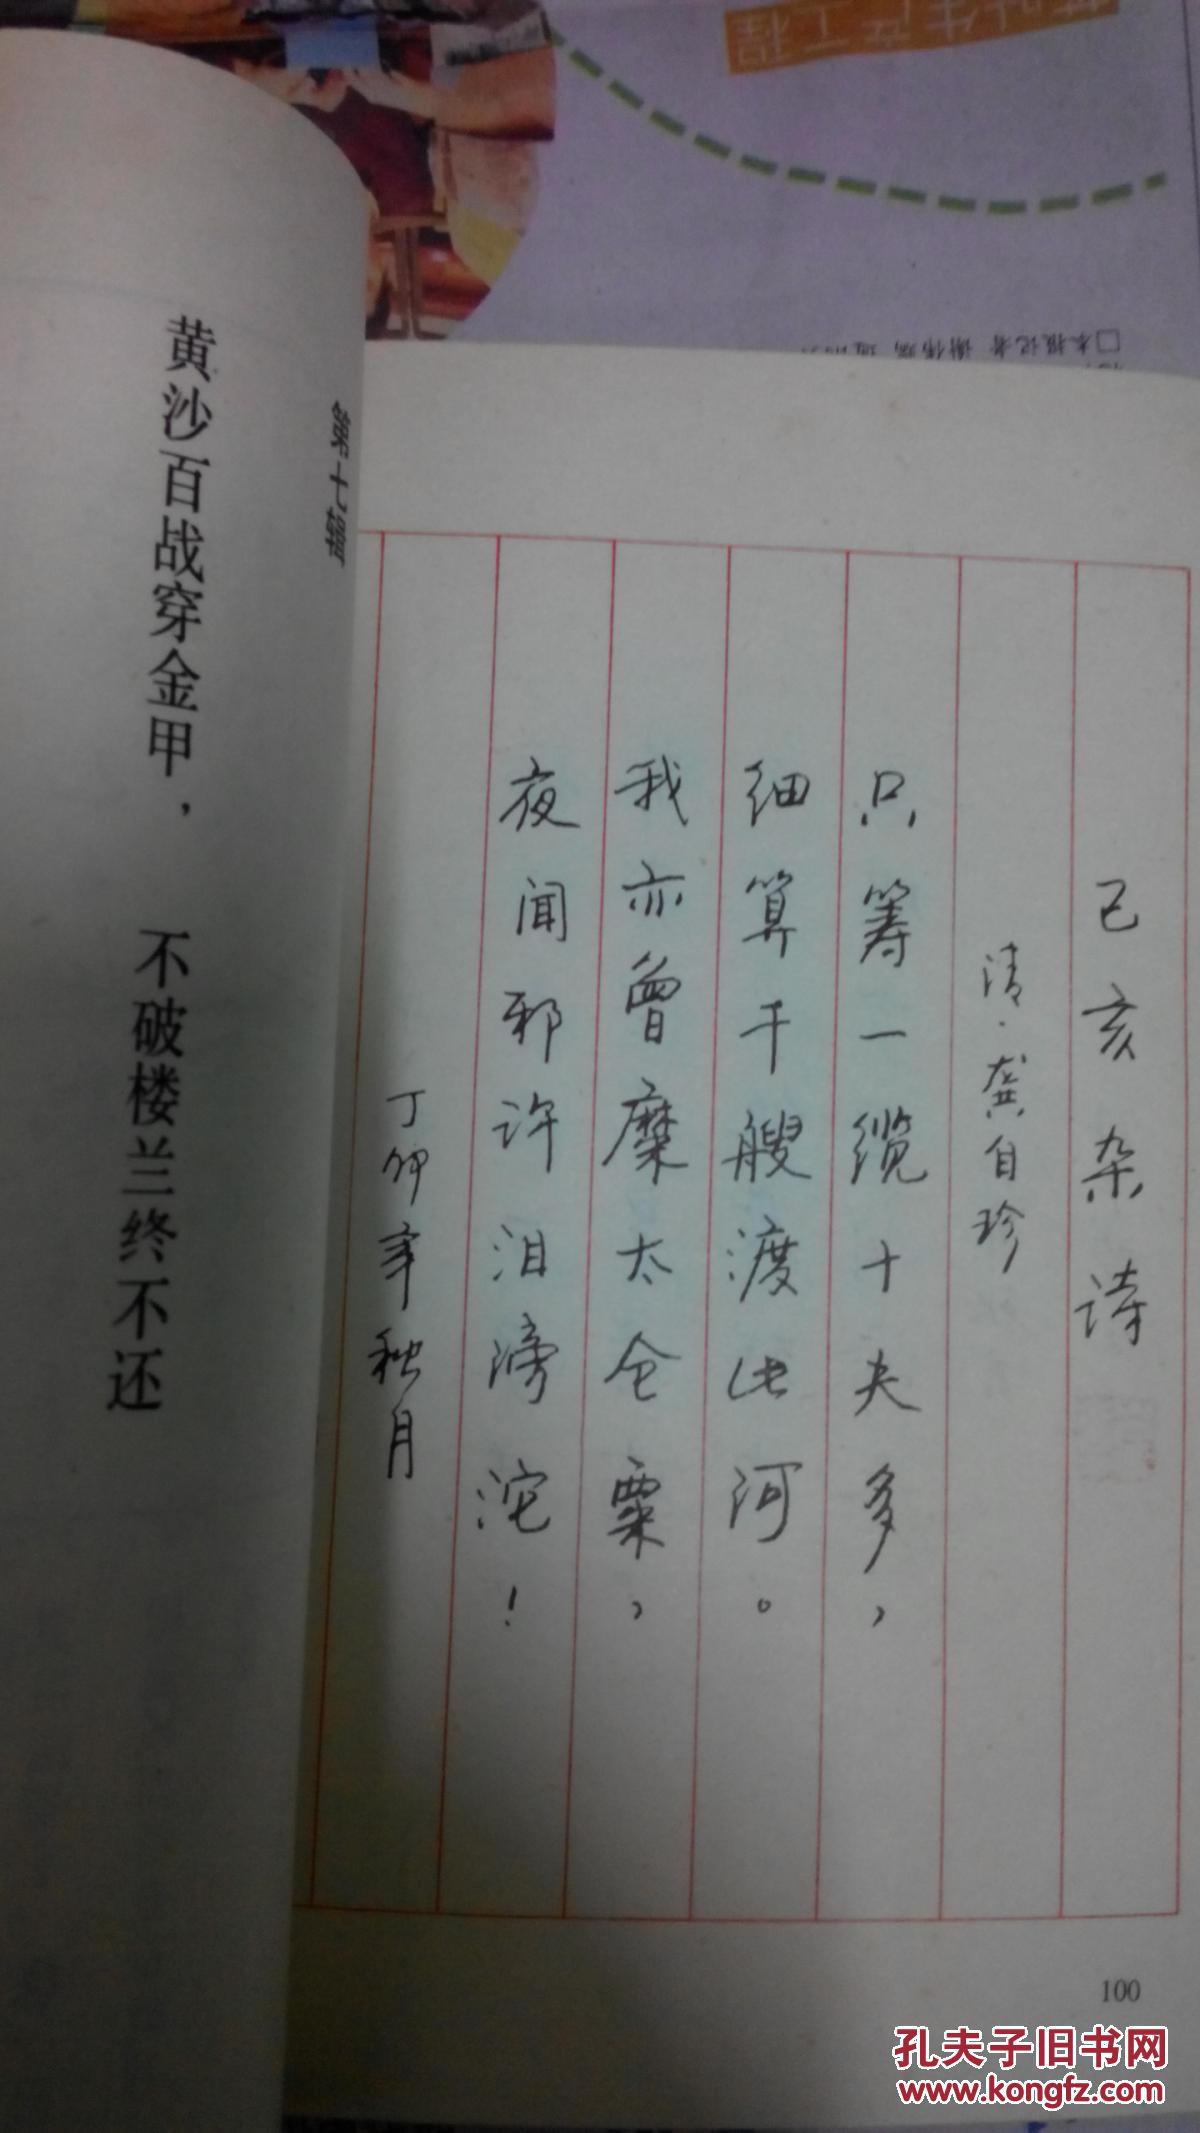 己亥杂诗
清·龚自珍
只筹一缆十夫多，
细算千艘渡此河。
我亦曾糜太仓粟，
夜闻邪许泪滂沱！
丁卯年秋月
100
第七辑
黄沙百战穿金甲，
不破楼兰终不还
□本报记者
孔夫子旧书网
www.kongfz.com